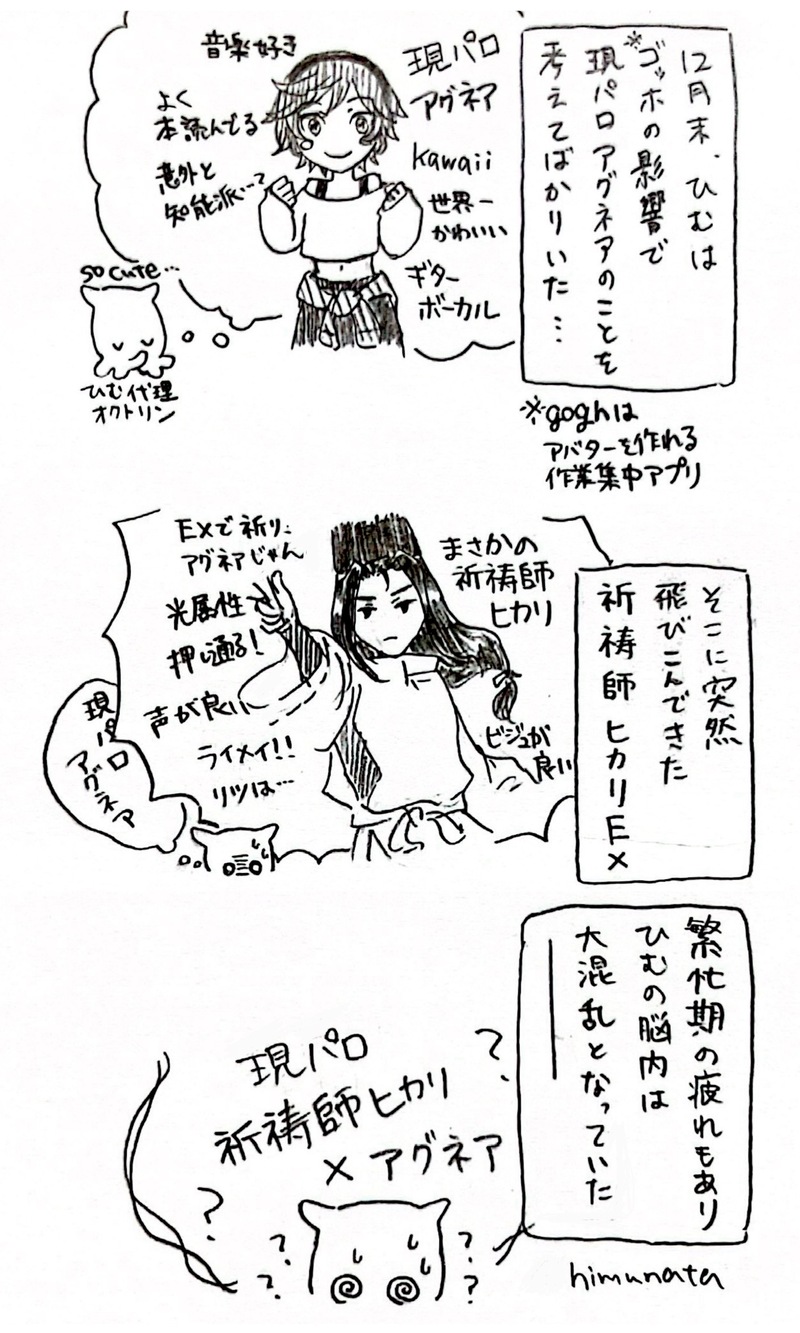 12月末、ひむは
※ゴッホの影響で
現パロアグネアのことを
考えてばかりいた…
※goghは
アバターを作れる
作業集中アプリ
現パロ
アグネア
kawaii
世界一
かわいい
ギター
ボーカル
音楽好き
よく
本読んでる
意外と
知能派…?
so cute…
ひむ代理
オクトリン
そこに突然
飛びこんできた
祈祷師ヒカリEX
まさかの
祈祷師
ヒカリ
ビジュが
良い
EXで祈り、
アグネアじゃん
光属性で
押し通る!
声が良い
ライメイ!!
リツは…
現パロ
アグネア
繁忙期の疲れもあり
ひむの脳内は
大混乱となっていた
現パロ
祈祷師ヒカリ
×アグネア
?
?
?
?
?
?
himunata